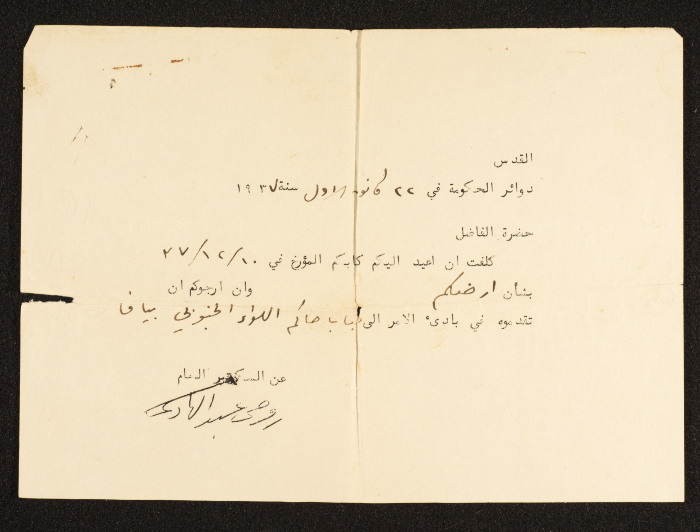 القدس
دوائر الحكومة في ٢٢ كانون الاول سنة ١٩٣٧
حضرة الفاضل
كلفت ان اعيد اليكم كتابكم المؤرخ في ٣٧/١٢/١٠
بشأن ارضكم وان ارجوكم ان
تقدموه في بادئ الامر الى جناب حاكم اللواء الجنوبي بيافا
عن السكرتير العام
روحي عبد الهادي